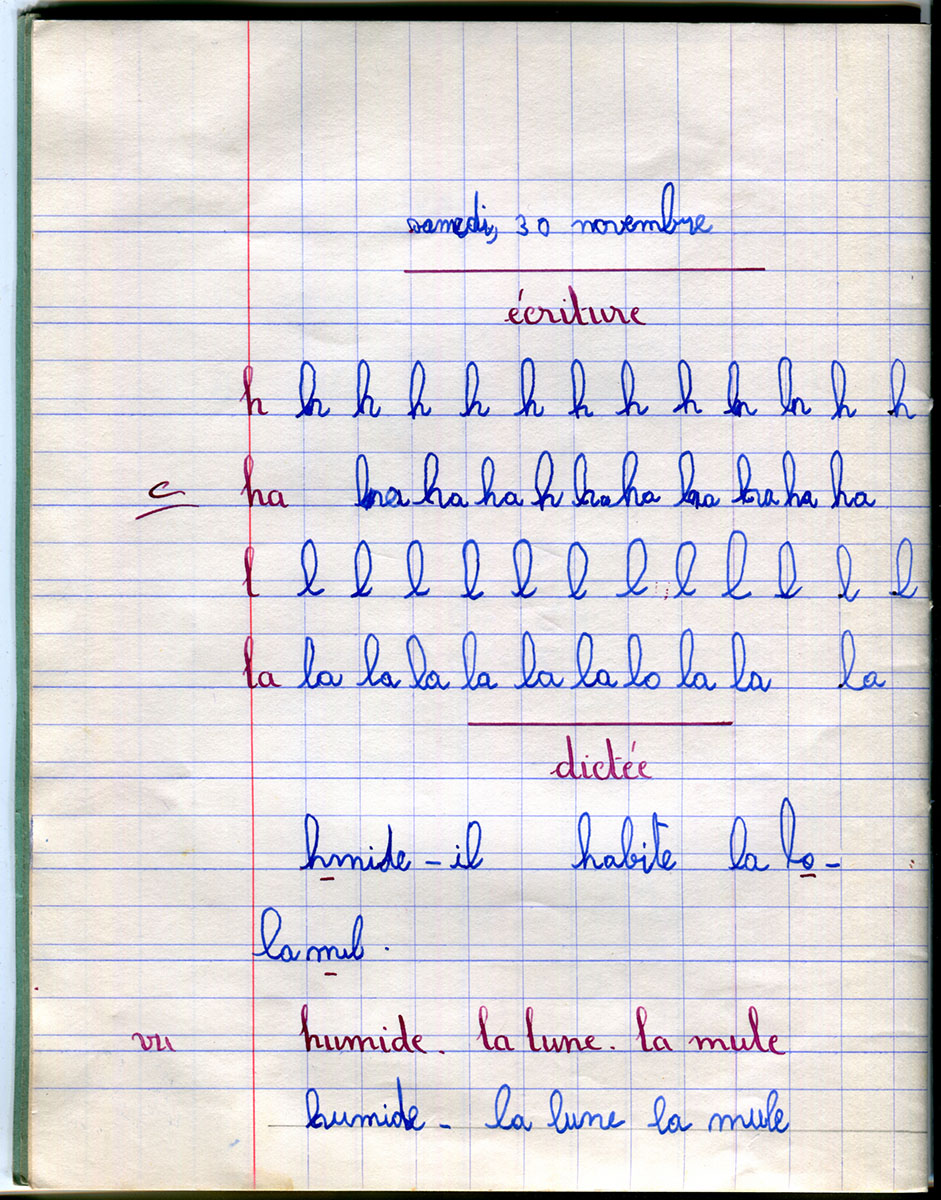 samedi, 30 novembre
écriture
h h h h h h h h h h h h h
c ha ha ha ha h ha ha ha ha ha ha
l l l l l l l l l l l l l
la la la la la la la lo la la la
dictée
hmide - il habite la lo -
la mul .
vu humide. la lune. la mule
humide - la lune la mule